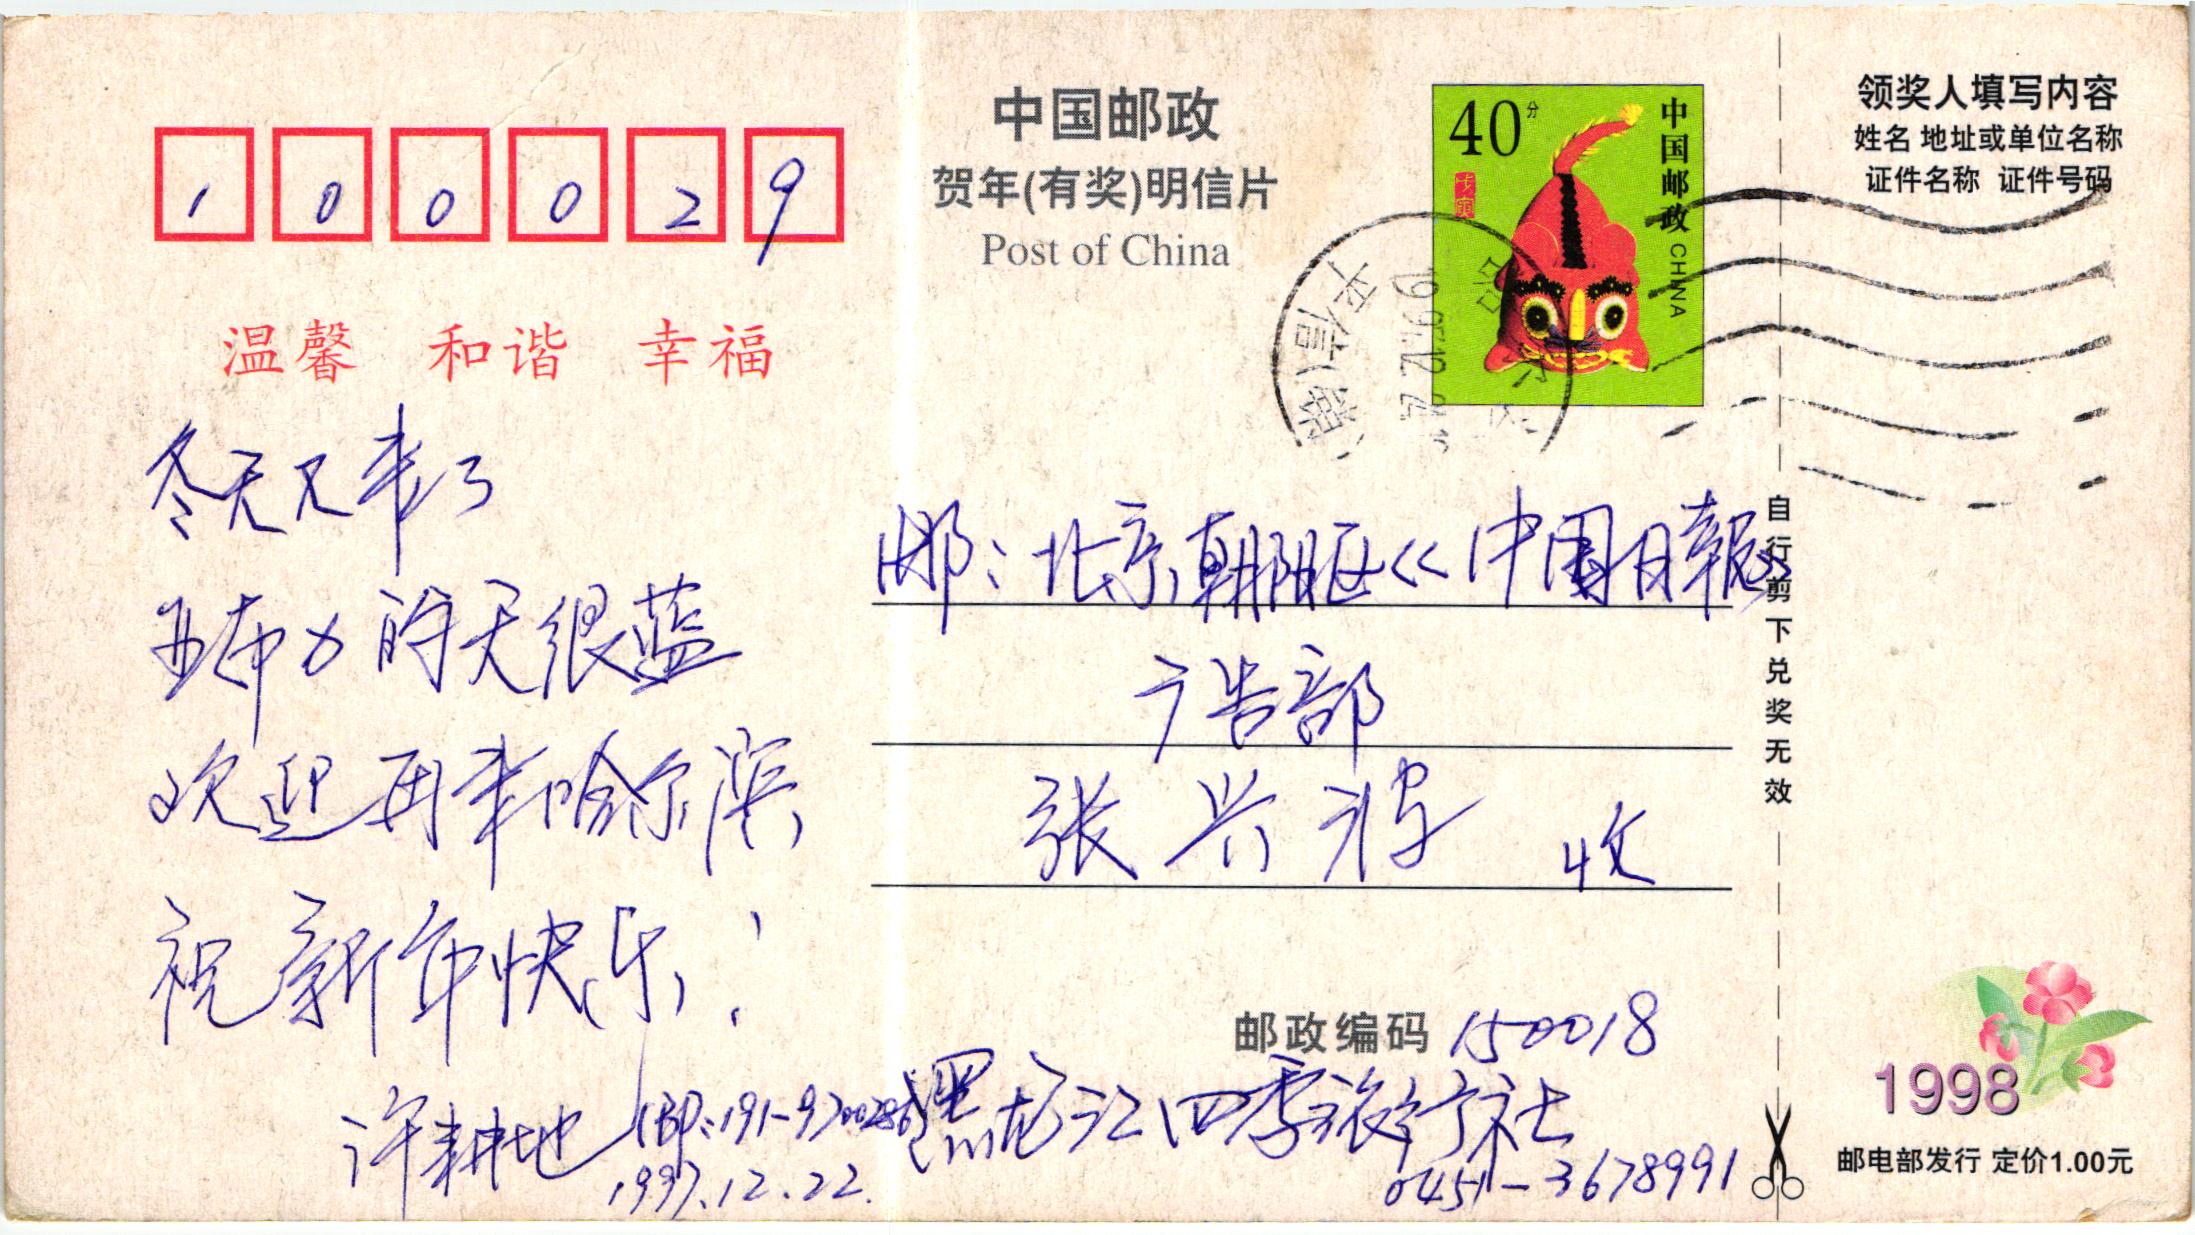 100029
温馨 和谐 幸福
冬天又来了
亚布力的天很蓝
欢迎再来哈尔滨
祝新年快乐!
许耕地
1997.12.22.
中国邮政
贺年(有奖)明信片
Post of China
40分
中国邮政 CHINA
戊寅
邮:北京朝阳区《中国日報》
广告部
张兴 收
邮政编码 150018
黑龙江四季旅行社
0451-3678991
自行剪下兑奖无效
领奖人填写内容
姓名 地址或单位名称
证件名称 证件号码
1998
邮电部发行 定价1.00元